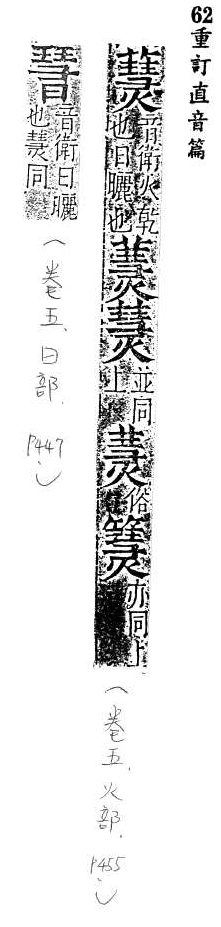 62重訂直音篇
音衛火乾也日曬也
並同上
俗
亦同上
(卷五、火部、P455)
音衛日曬也
同
(卷五、日部、P447)